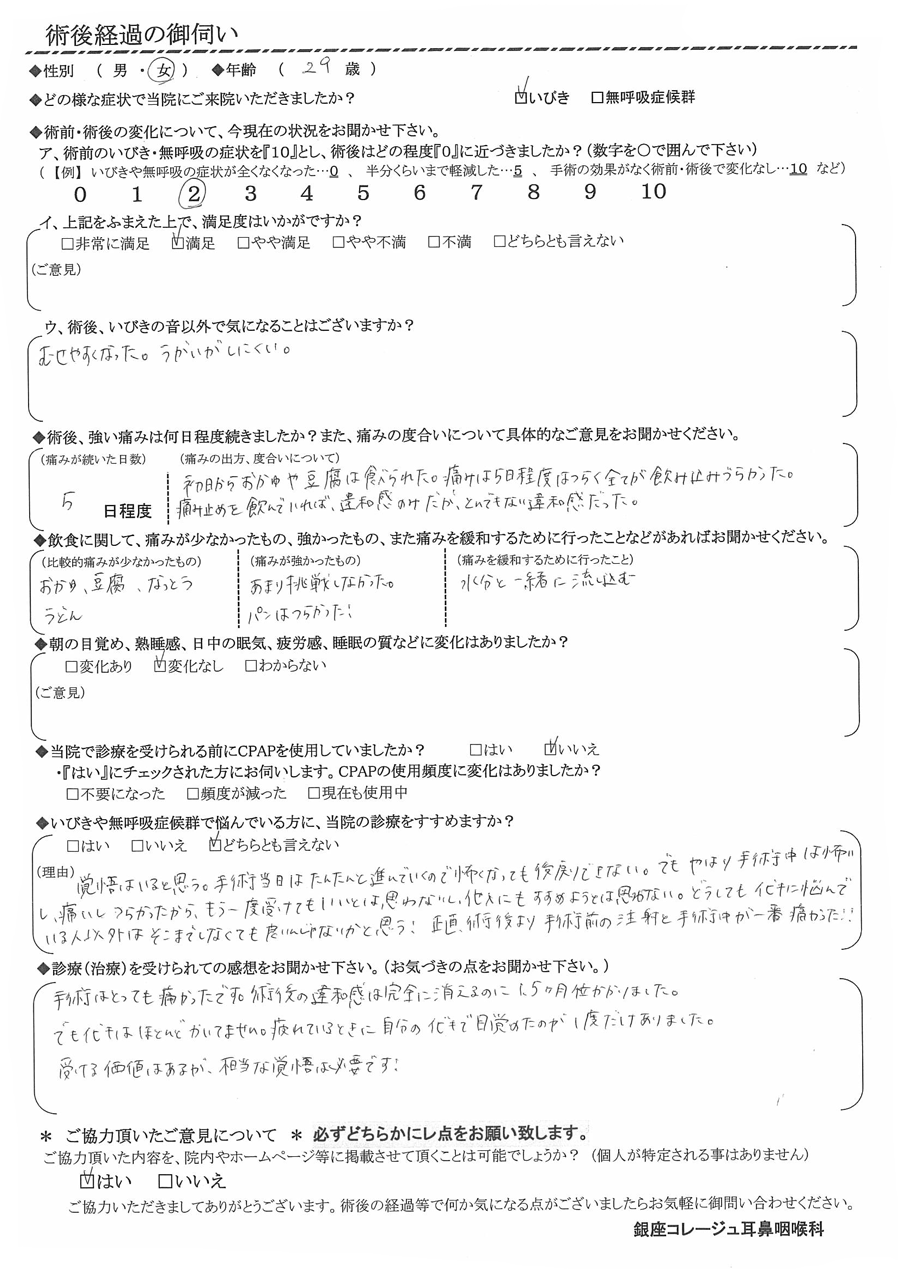 術後経過の御伺い
◆性別 ( 男 ・ 女 ) ◆年齢 ( 29 歳 )
◆どの様な症状で当院にご来院いただきましたか? ☑いびき □無呼吸症候群
◆術前・術後の変化について、今現在の状況をお聞かせ下さい。
ア、術前のいびき・無呼吸の症状を『10』とし、術後はどの程度『0』に近づきましたか?(数字を〇で囲んで下さい)
(【例】 いびきや無呼吸の症状が全くなくなった…0 、 半分くらいまで軽減した…5 、 手術の効果がなく術前・術後で変化なし…10 など)
0 1 2 3 4 5 6 7 8 9 10
イ、上記をふまえた上で、満足度はいかがですか?
□非常に満足 ☑満足 □やや満足 □やや不満 □不満 □どちらとも言えない
(ご意見)
ウ、術後、いびきの音以外で気になることはございますか?
むせやすくなった。うがいがしにくい。
◆術後、強い痛みは何日程度続きましたか?また、痛みの度合いについて具体的なご意見をお聞かせください。
(痛みが続いた日数) (痛みの出方、度合いについて)
初日からおかゆや豆腐は食べられた。痛みは5日程度はつらく全てが飲み込みづらかった。
5 日程度 痛み止めを飲んでいれば、違和感のみだが、とんでもない違和感だった。
◆飲食に関して、痛みが少なかったもの、強かったもの、また痛みを緩和するために行ったことなどがあればお聞かせください。
(比較的痛みが少なかったもの) (痛みが強かったもの) (痛みを緩和するために行ったこと)
おかゆ、豆腐、なっとう あまり挑戦しなかった。 水分と一緒に流し込む
うどん パンはつらかった!
◆朝の目覚め、熟睡感、日中の眠気、疲労感、睡眠の質などに変化はありましたか?
□変化あり ☑変化なし □わからない
(ご意見)
◆当院で診療を受けられる前にCPAPを使用していましたか? □はい ☑いいえ
・『はい』にチェックされた方にお伺いします。CPAPの使用頻度に変化はありましたか?
□不要になった □頻度が減った □現在も使用中
◆いびきや無呼吸症候群で悩んでいる方に、当院の診療をすすめますか?
□はい □いいえ ☑どちらとも言えない
(理由) 覚悟はいると思う。手術当日はたんたんと進んでいくので怖くなっても後戻りできない。でもやはり手術中は怖い
し、痛いしつらかったから、もう一度受けてもいいとは思わないし、他人にもすすめようとは思わない。どうしてもイビキに悩んで
いる人以外はそこまでしなくても良いんじゃないかと思う! 正直、術後より手術前の注射と手術中が一番痛かった!!
◆診療(治療)を受けられての感想をお聞かせ下さい。(お気づきの点をお聞かせ下さい。)
手術はとっても痛かったです。術後の違和感は完全に消えるのに1.5ヶ月位かかりました。
でもイビキはほとんどかいてません。疲れているときに自分のイビキで目覚めたのが1度だけありました。
受ける価値はあるが、相当な覚悟は必要です!
＊ ご協力頂いたご意見について ＊ 必ずどちらかにレ点をお願い致します。
ご協力頂いた内容を、院内やホームページ等に掲載させて頂くことは可能でしょうか? (個人が特定される事はありません)
☑はい □いいえ
ご協力いただきましてありがとうございます。術後の経過等で何か気になる点がございましたらお気軽に御問い合わせください。
銀座コレージュ耳鼻咽喉科